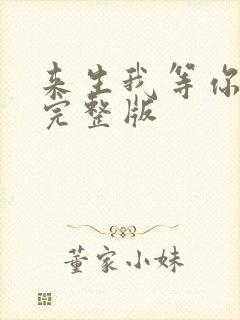 来生我等你
完整版
董家小妹